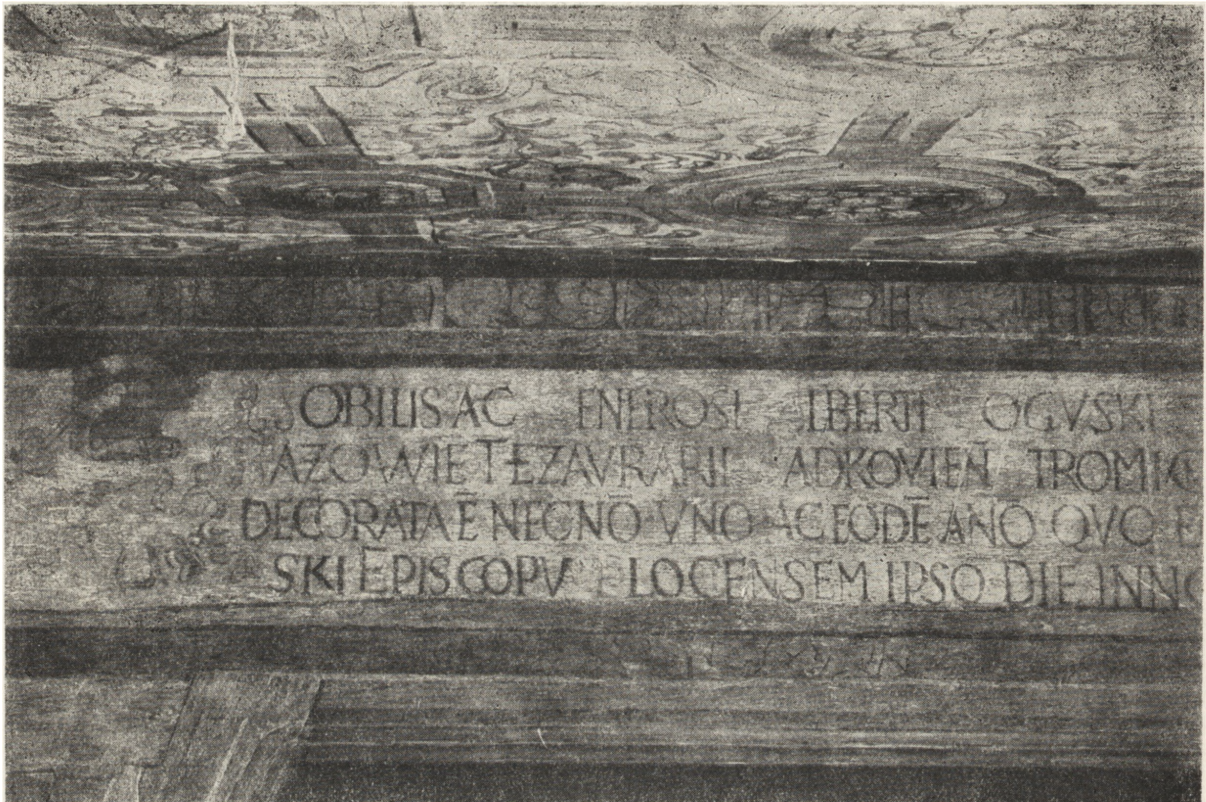 OBILIS AC ENEROSI LBERTI OGVSKI
AZOWIE TEZAVRARII ADKOVIEN̄ TROMIC
DECORATA Ē NECNŌ VNO AC EODĒ ANO QVO
SKI EPISCOPV LOCENSEM IPSO DIE INNO